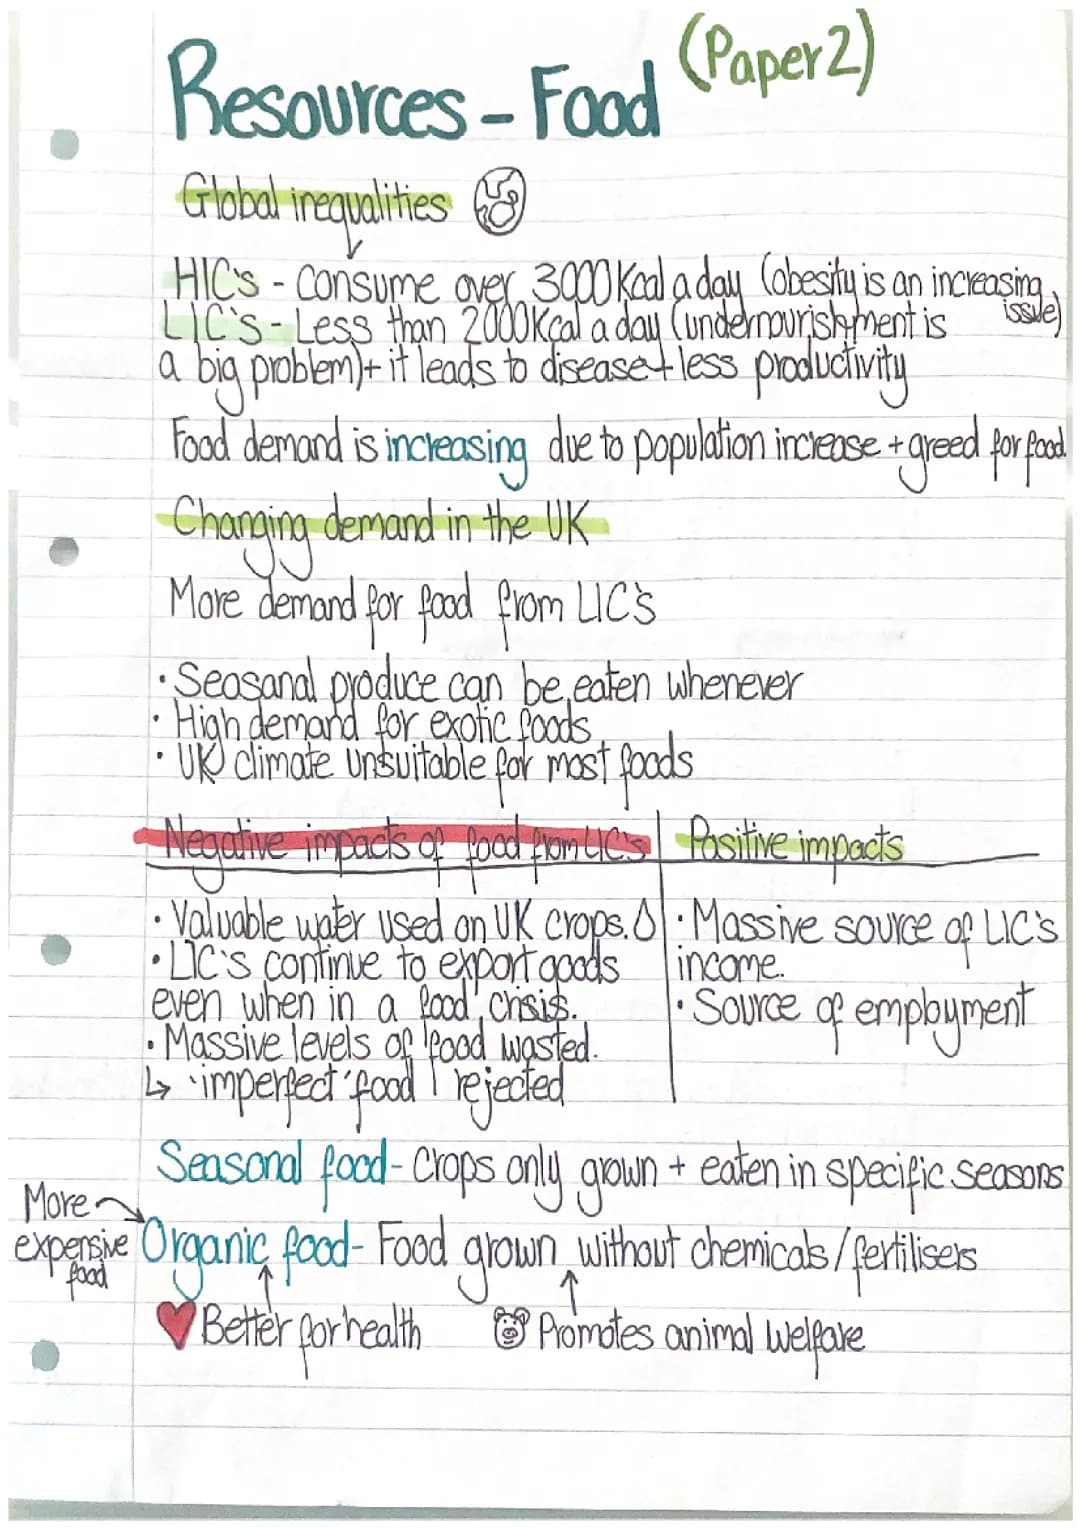 Resources - Food (Paper 2)
Global inequalities
HIC's - Consume over 3000Kcal a day (obesity is an increasing issue)
LIC's - Less than 2000Kcal a day (undernourishment is
a big problem) + it leads to disease + less productivity
Food demand is increasing due to population increase + greed for food
Changing demand in the UK
More demand for food from LIC's
· Seasanal produce can be eaten whenever
· High demand for exotic foods
· UK climate unsuitable for most foods
Negative impacts of food from LIC's
· Valuable water used on UK crops.
· LIC's continue to export goods
even when in a food crisis.
· Massive levels of food wasted.
↳ 'imperfect' food rejected
Positive impacts
· Massive source of LIC's
income.
· Source of employment
Seasonal food - Crops only grown + eaten in specific seasons
More
expensive
food
Organic food - Food grown without chemicals/fertilisers
Better for health
Promotes animal welfare